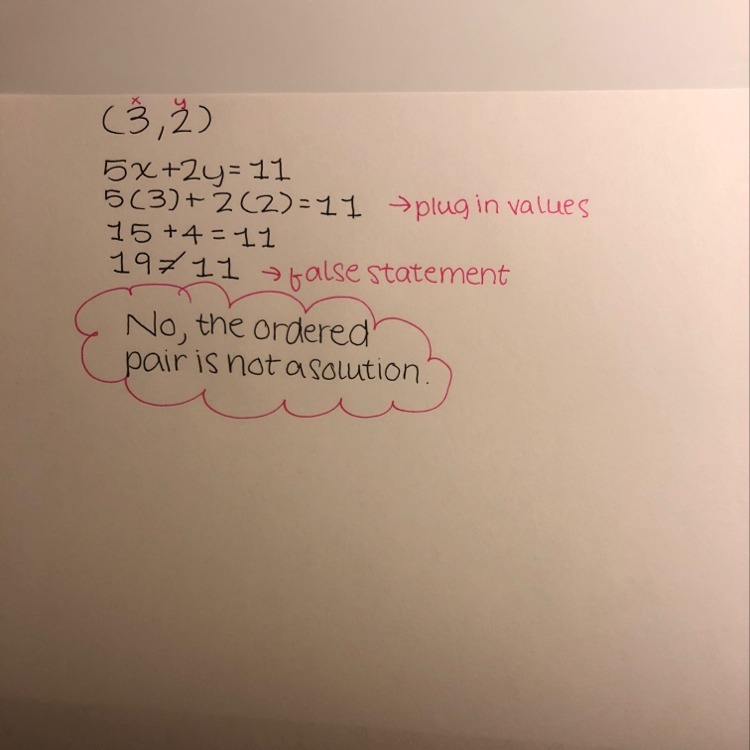 x y
(3,2)
5x+2y=11
5(3)+2(2)=11 →plug in values
15+4=11
19≠11 →false statement
No, the ordered
pair is not a solution.